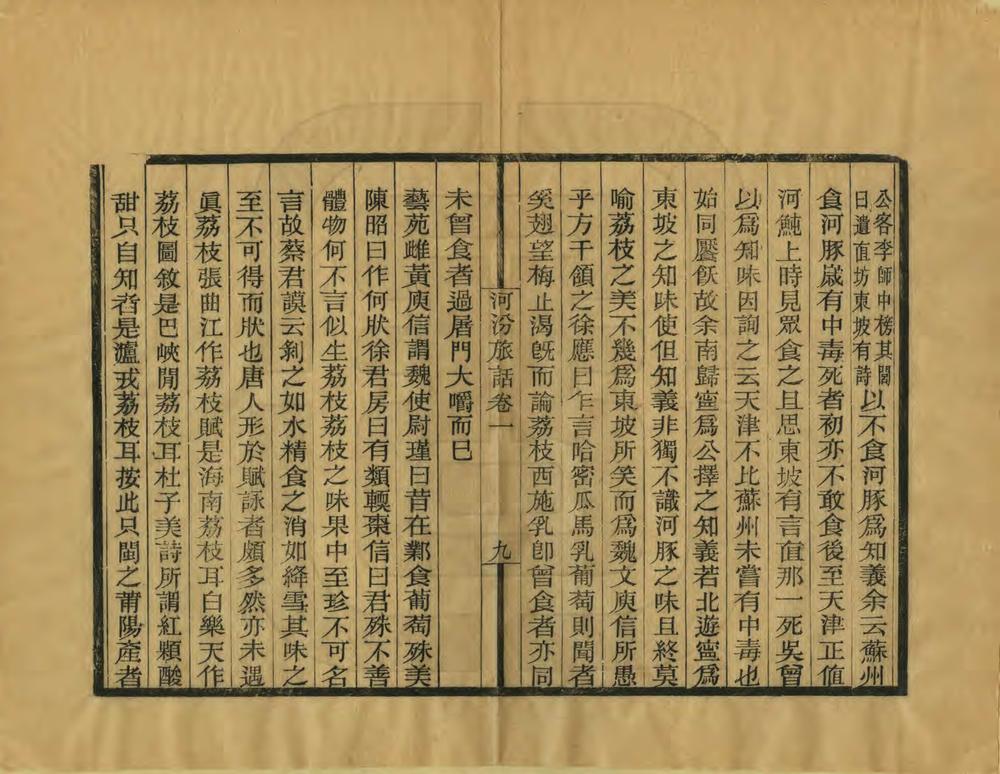 公客李師中榜其閣
日遺直坊東坡有詩
以不食河豚為知義余云蘇州
食河豚嵗有中毒死者初亦不敢食後至天津正值
河魨上時見眾食之且思東坡有言直那一死吳曾
以為知味因詢之云天津不比蘇州未嘗有中毒也
始同饜飫故余南歸寧為公擇之知義若北遊寧為
東坡之知味使但知義非獨不識河豚之味且終莫
喻荔枝之美不幾為東坡所笑而為魏文庾信所愚
乎方干領之徐應曰乍言哈密瓜馬乳葡萄則聞者
奚翅望梅止渴旣而論荔枝西施乳卽曾食者亦同
河汾旅話卷一
九
未曾食者過屠門大嚼而巳
藝苑雌黃庾信謂魏使尉瑾曰昔在鄴食葡萄殊美
陳昭曰作何狀徐君房曰有類輭棗信曰君殊不善
體物何不言似生荔枝荔枝之味果中至珍不可名
言故蔡君謨云剝之如水精食之消如絳雪其味之
至不可得而狀也唐人形於賦詠者頗多然亦未遇
眞荔枝張曲江作荔枝賦是海南荔枝耳白樂天作
荔枝圖敘是巴峽閒荔枝耳杜子美詩所謂紅顆酸
甜只自知者是瀘戎荔枝耳按此只閩之莆陽產者